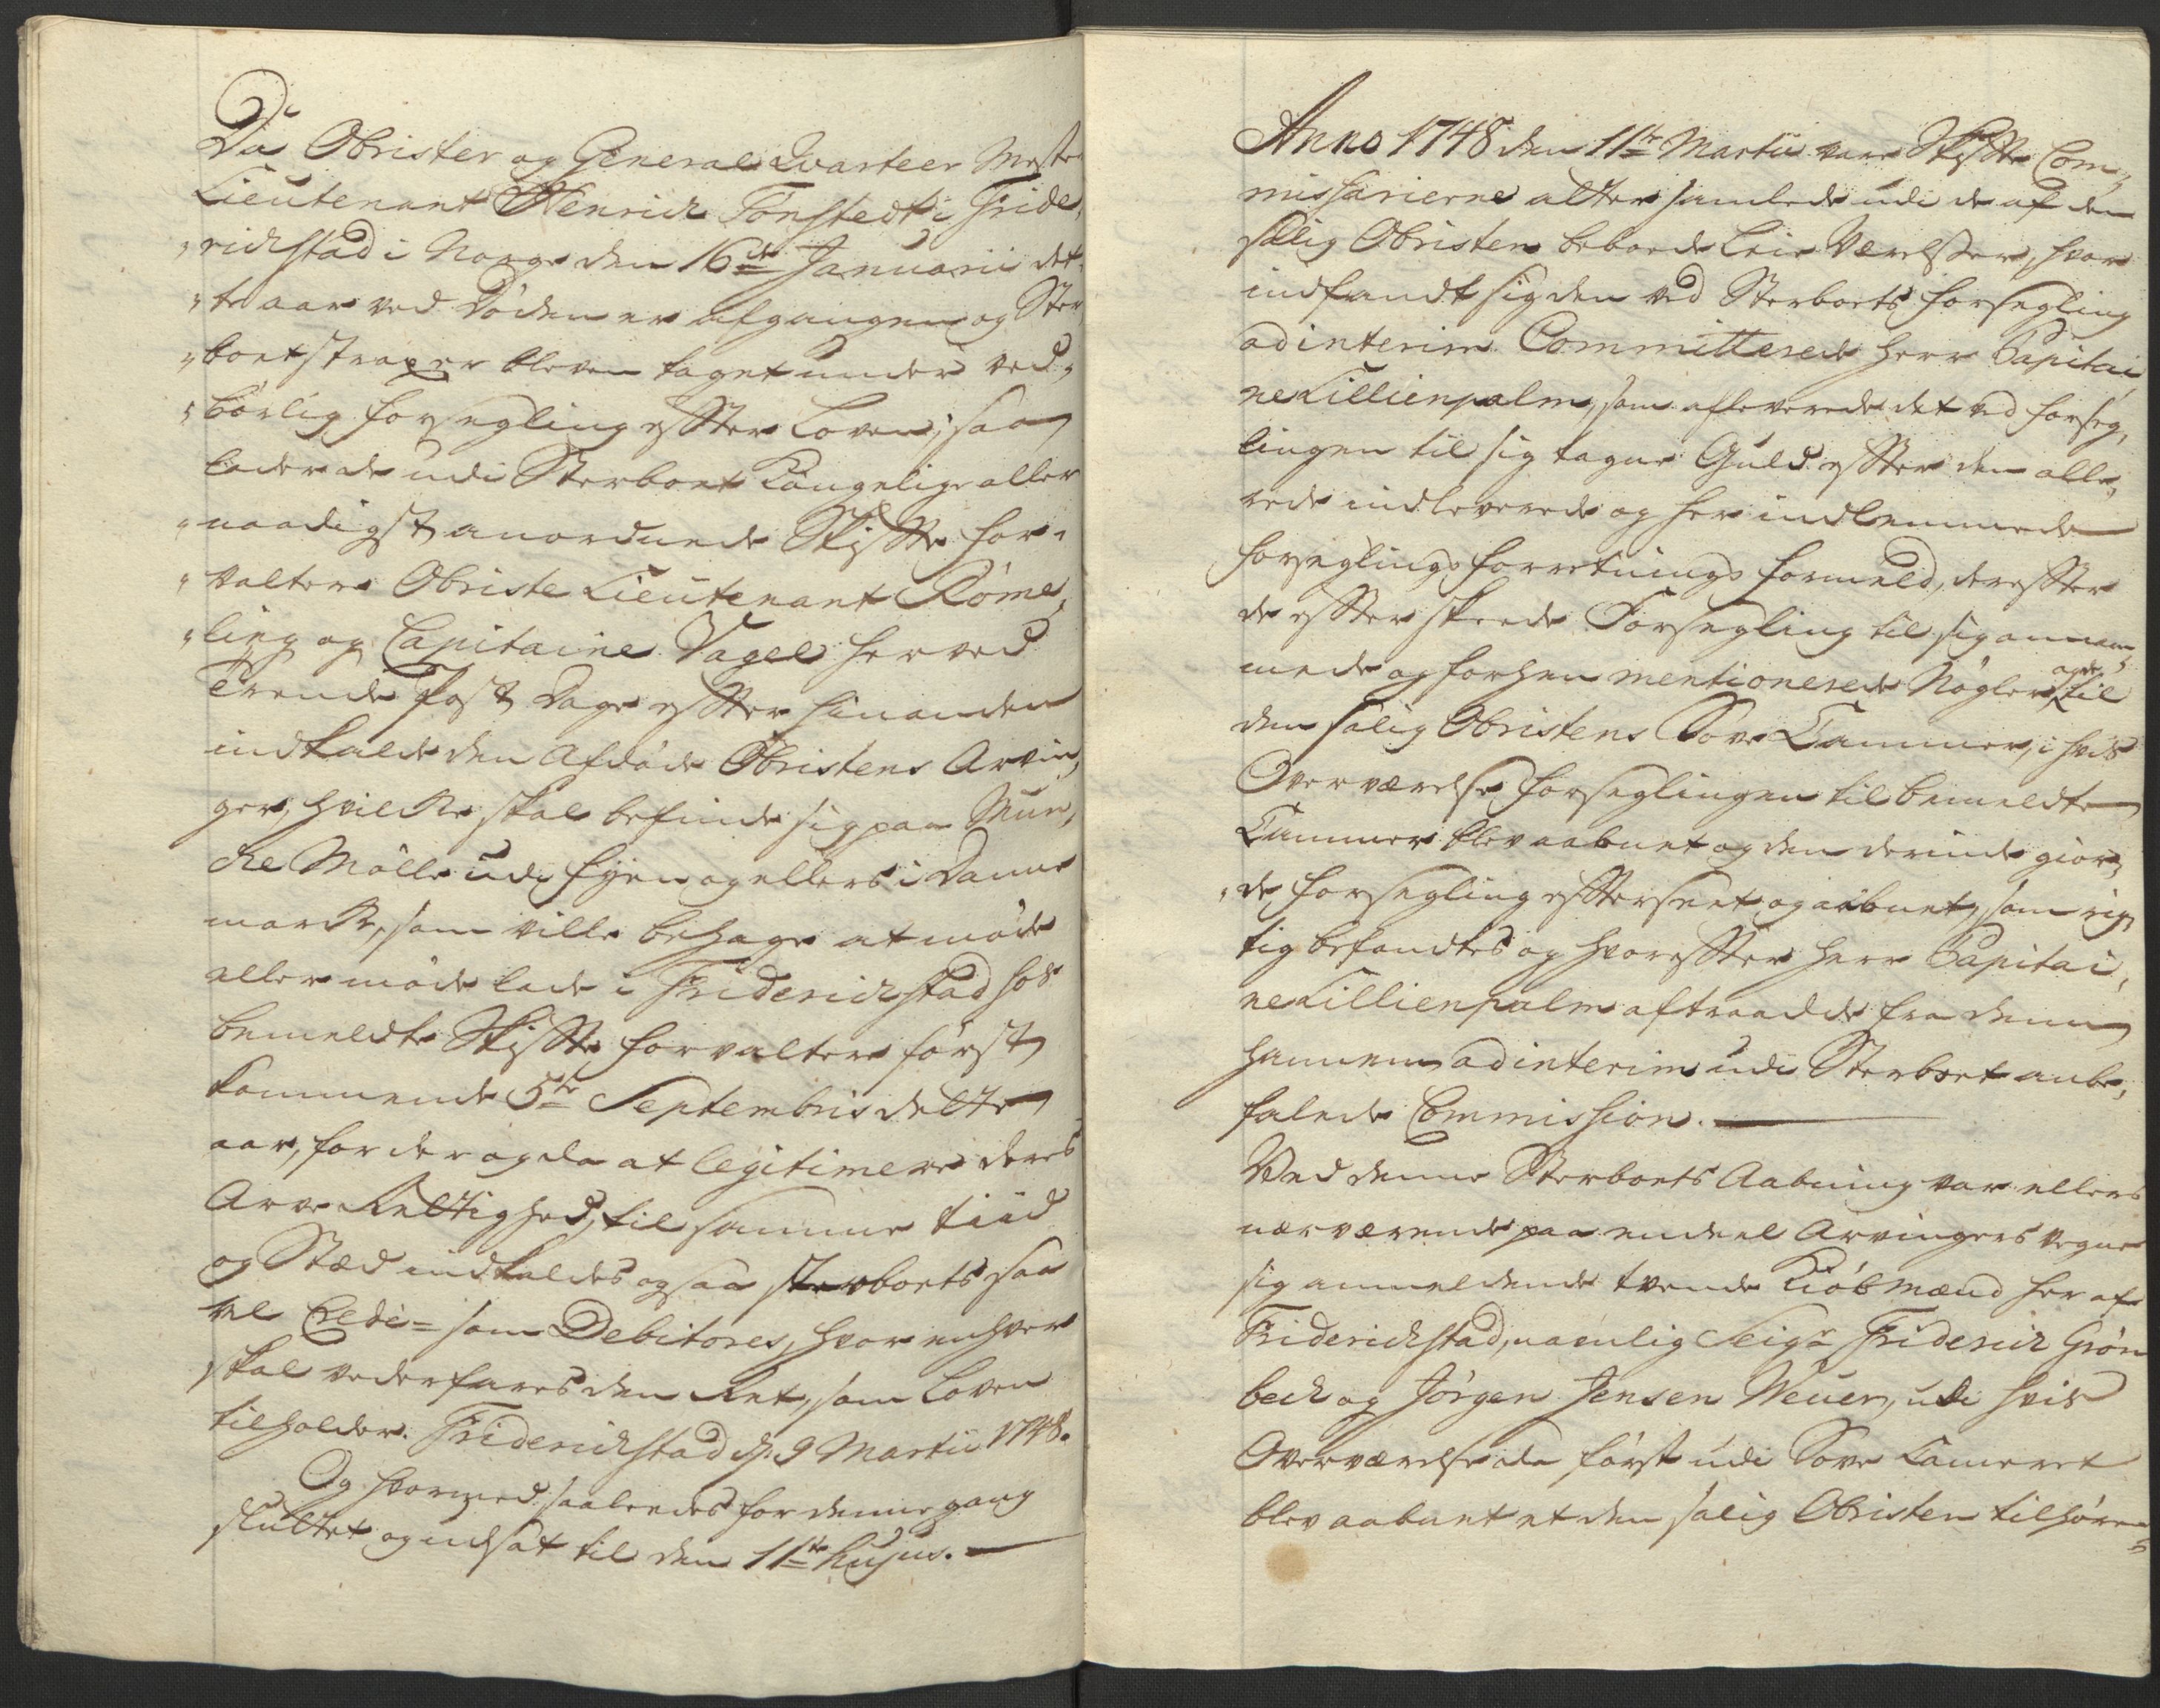 Da Obrister og General Qvarteer Mester
Lieutenant Henrich Tonstedt i Fride,
„richstad i Norge den 16de Januarii det„
„te aar ved Döden er afgangen og Ster,
„boet strax er bleven taget under ved,
„börlig forsegling efter Loven; saa
lader de udi Sterboet Kongelig aller
„naadigst anordnede Skifte for„
„valtere Obriste Lieutenant Röme,
„ling og Capitaine Vagel herved
Trende Post Dage efter hinanden
indkalde den Afdöde Obristens Arvin,
ger, hvilke skal befinde sig paa Mun,
ke Mölle udi Fyen og ellers i Danne
mark, som ville behage at möde
eller möde lade i Friderichstad hos
bemeldte Skifte Forvaltere först
kommende 5te Septembris dette
aar, for der og da at legitimere deres
Arve Rettighed, til samme tiid
og Stæd indkaldes ogsaa sterboets saa
vel Credi= som Debitores, hvor enhver
skal vederfares den Ret, som Loven
tilholder. Friderichstad d. 9 Martii 1748.
Og hvormed saaledes for denne gang
sluttet og udsat til den 11te hujus.
Anno 1748 den 11te Martii vare Skifte Com,
missarierne atter samlede udi de af den
salig Obristen beboede Leie Værelser, hvor
indfandt sig den ved Sterboets forsegling
ad interim Committerede Herr Capitai
ne Lillienpalm, som afleverede det ved forseg,
lingen til sig tagne Guld efter den alle,
rede indleverede og her indlemmede
forseglings forretnings formeld, derefter
de efter skeede Forsegling til sig annam
mede og forhen mentionerede Nögler og til
den salig Obristens Sove Cammer, i hvis
Overværelse forseglingen til bemeldte
Cammer blev aabnet og den derinde gior,
„de forsegling efterseet og aabnet, som rig,
tig befandtes og hvorefter Herr Capitai,
ne Lillienpalm aftraadde fra denne
hannem ad interim udi Sterboet anbe,
falede Commission.
Ved denne Sterboets Aabning var ellers
nærværende paa endeel Arvingers vegne
sig anmeldende tvende Kiöbmænd her af
Friderichstad, namlig Seigr Friderich Grön
bech og Jörgen Jensen Weuer, udi hvis
Overværelse da först udi Sove Cameret
blev aabnet et den salig Obristen tilhören„